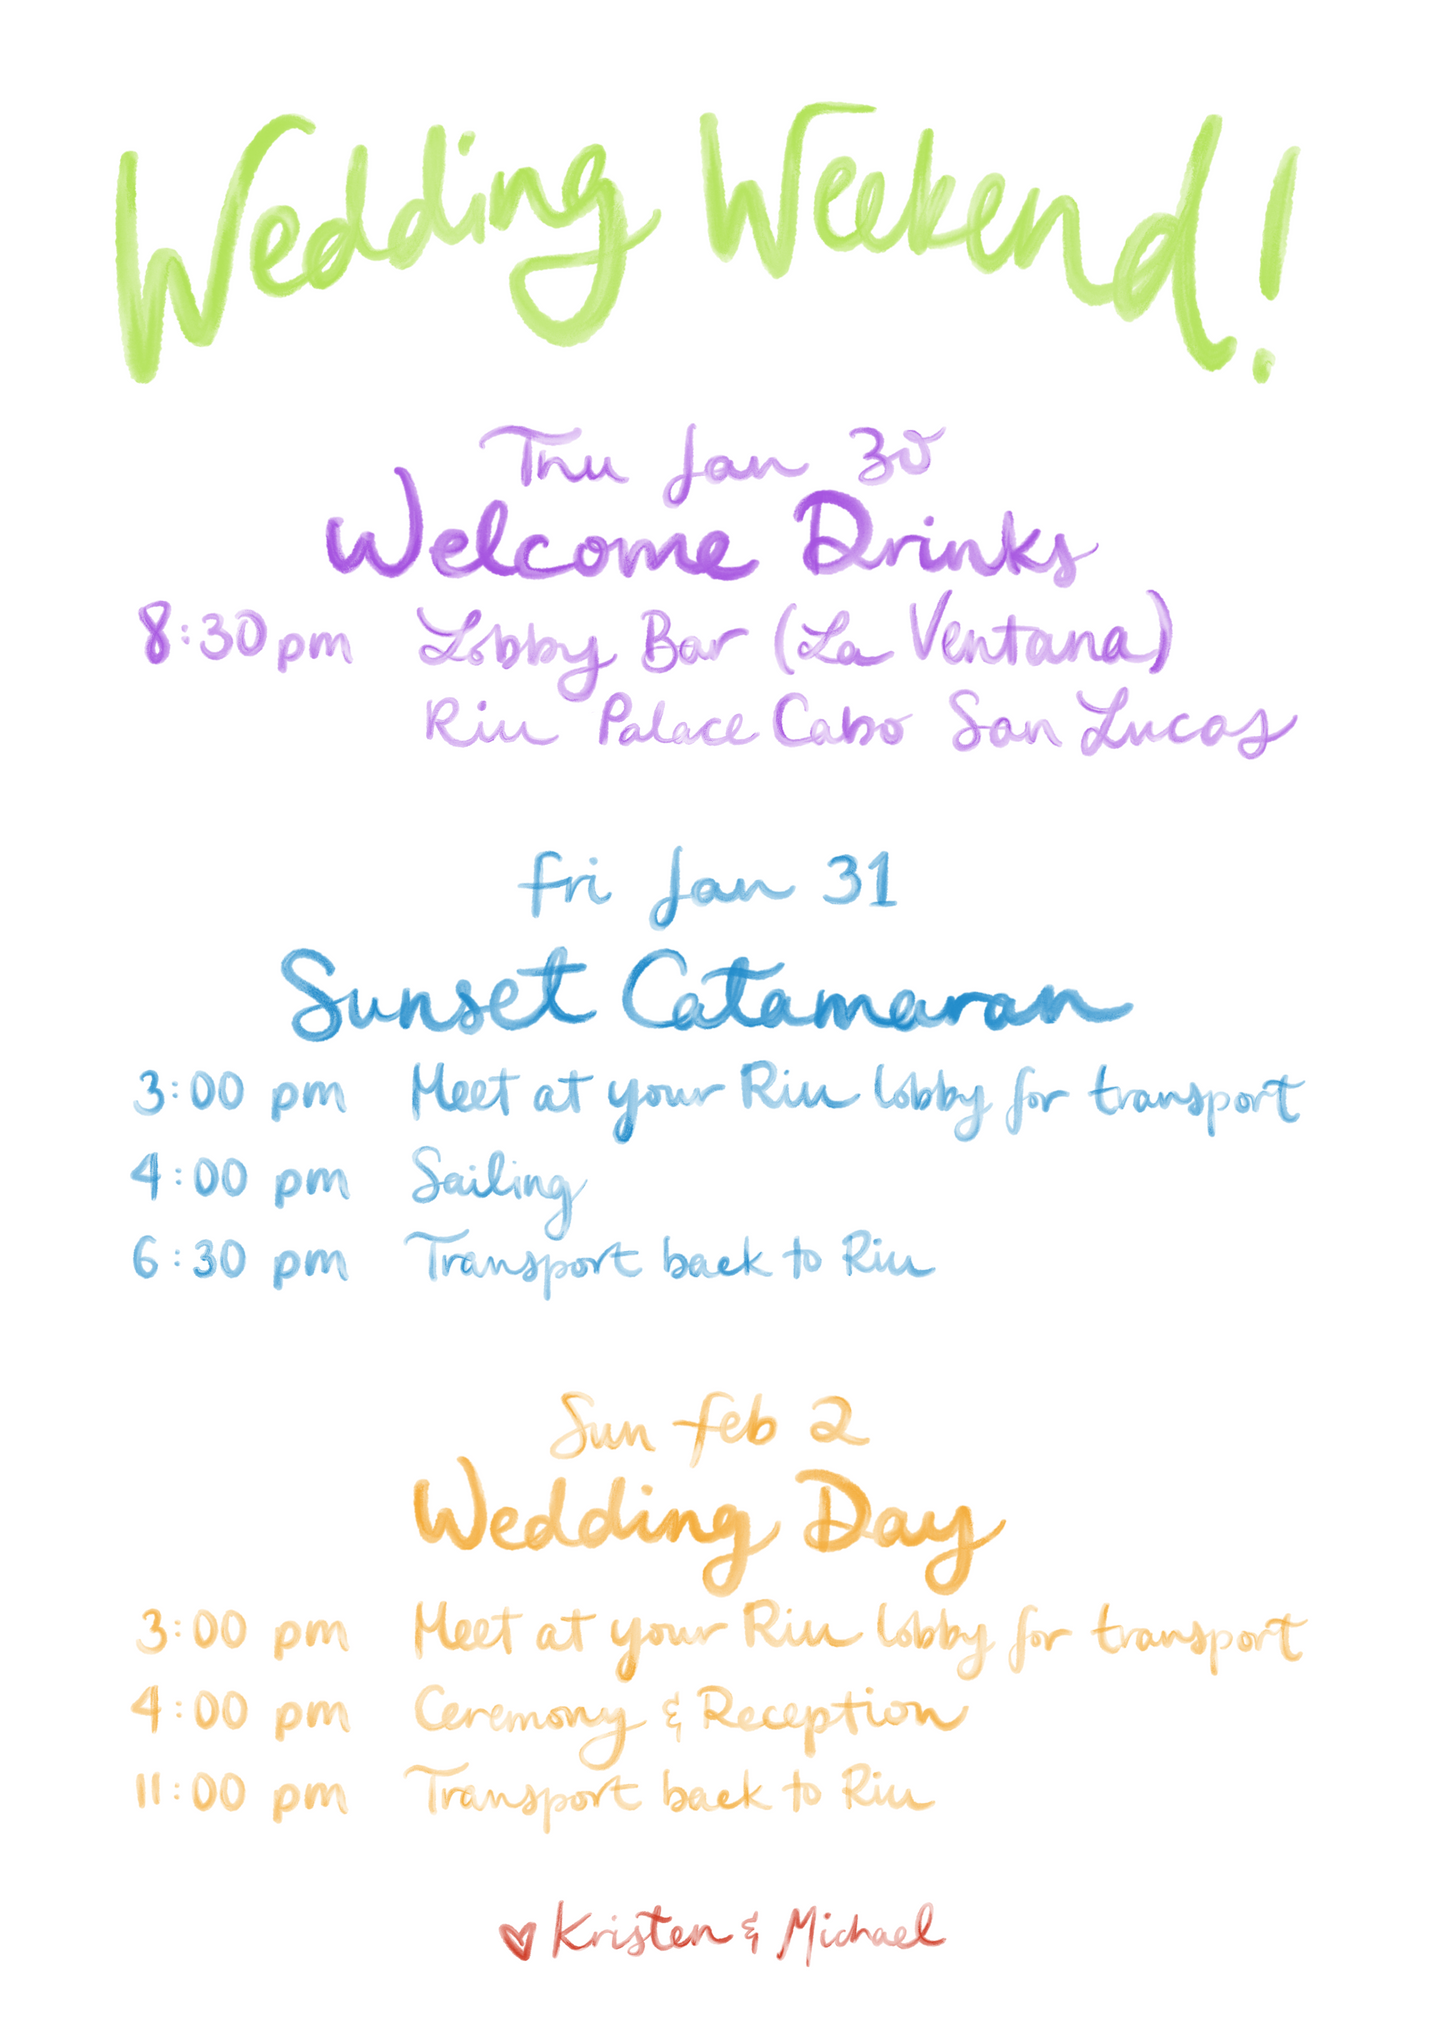 Wedding Weekend!
Thu Jan 30
Welcome Drinks
8:30 pm Lobby Bar (La Ventana)
Riu Palace Cabo San Lucas
Fri Jan 31
Sunset Catamaran
3:00 pm Meet at your Riu lobby for transport
4:00 pm Sailing
6:30 pm Transport back to Riu
Sun Feb 2
Wedding Day
3:00 pm Meet at your Riu lobby for transport
4:00 pm Ceremony & Reception
11:00 pm Transport back to Riu
♥ Kristen & Michael